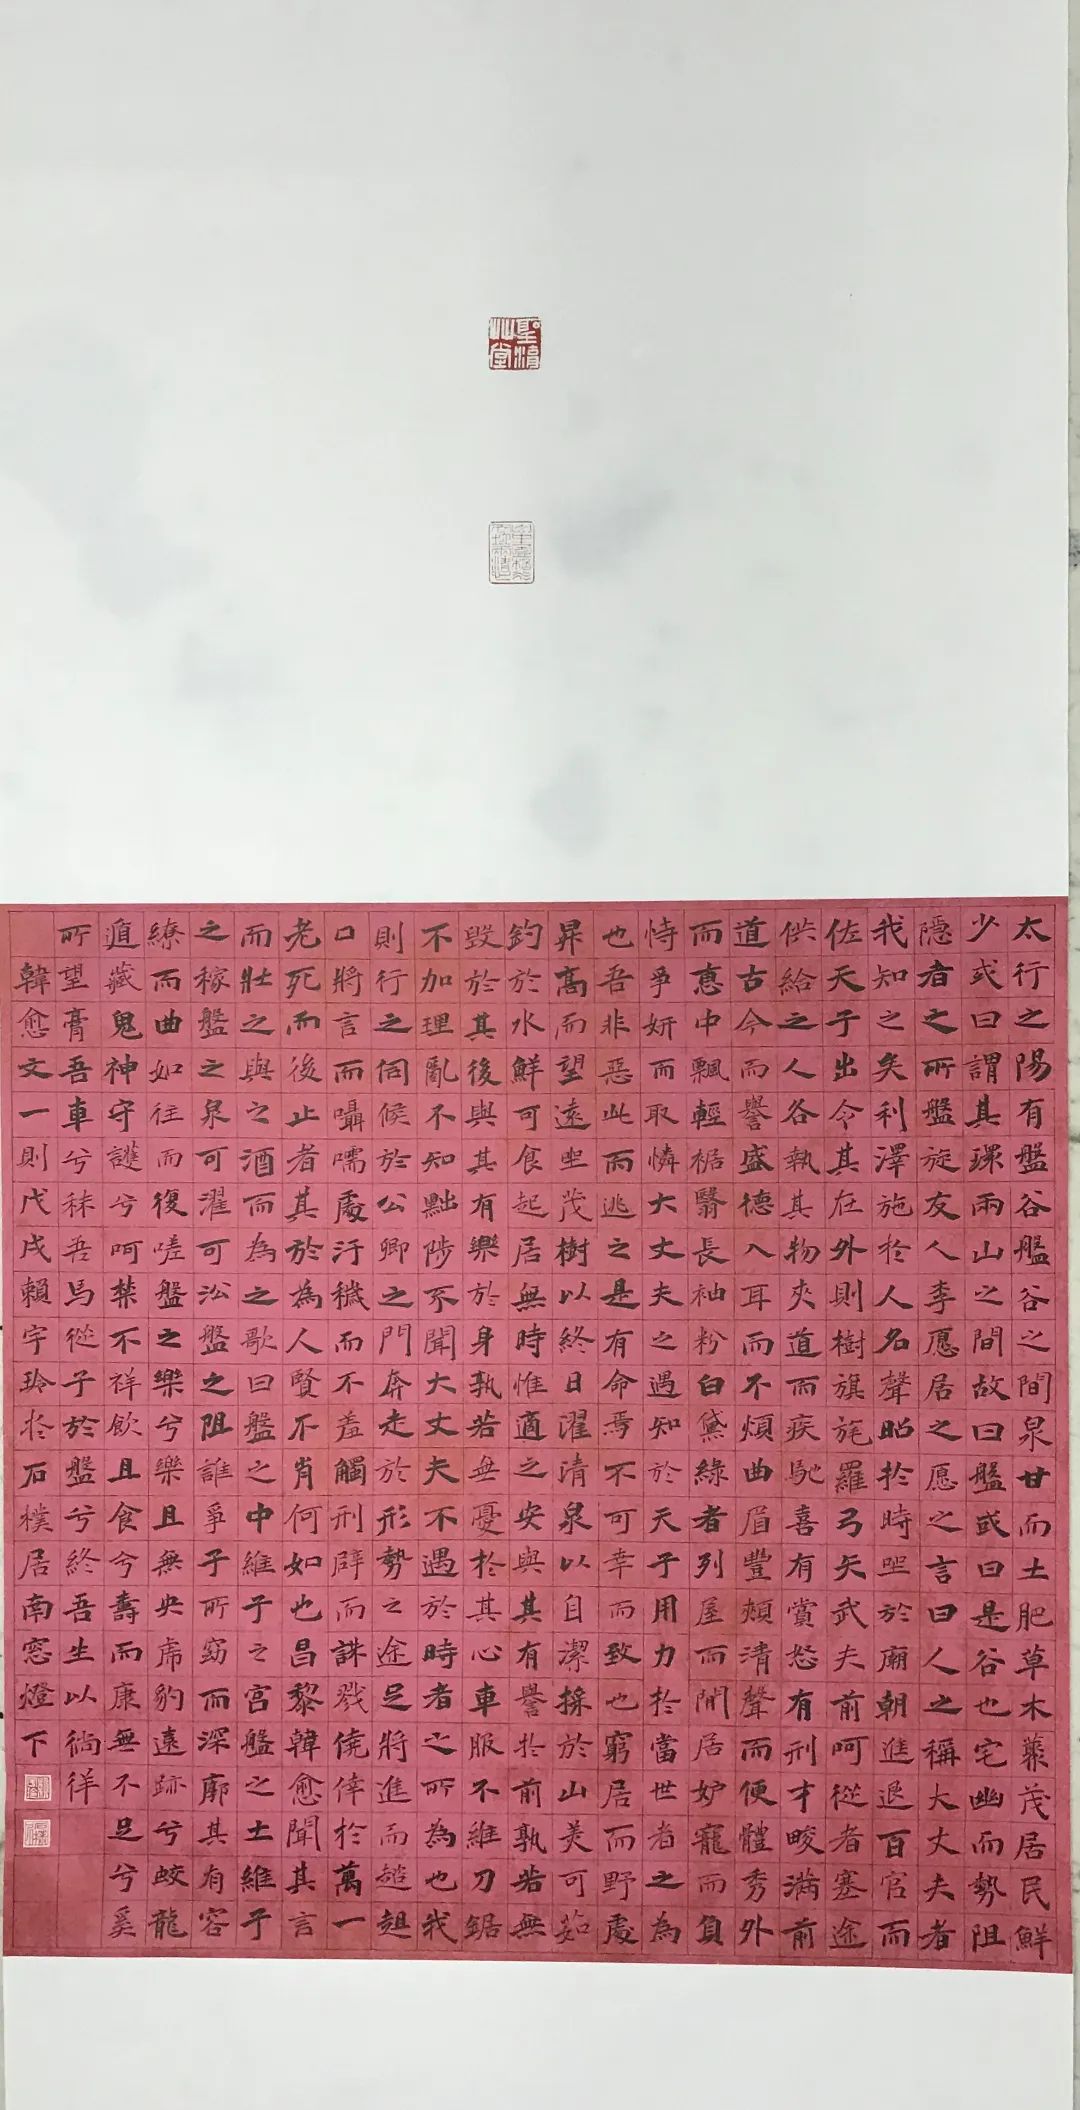 太行之陽有盤谷盤谷之間泉甘而土肥草木藂茂居民鮮
少或曰謂其環兩山之間故曰盤或曰是谷也宅幽而勢阻
隱者之所盤旋友人李愿居之愿之言曰人之稱大丈夫者
我知之矣利澤施於人名聲昭於時坐於廟朝進退百官而
佐天子出令其在外則樹旗旄羅弓矢武夫前呵從者塞途
供給之人各執其物夾道而疾馳喜有賞怒有刑才畯滿前
道古今而譽盛德入耳而不煩曲眉豐頰清聲而便體秀外
而惠中飄輕裾翳長袖粉白黛綠者列屋而閒居妒寵而負
恃爭妍而取憐大丈夫之遇知於天子用力於當世者之為
也吾非惡此而逃之是有命焉不可幸而致也窮居而野處
昇高而望遠坐茂樹以終日濯清泉以自潔採於山美可茹
釣於水鮮可食起居無時惟適之安與其有譽於前孰若無
毀於其後與其有樂於身孰若無憂於其心車服不維刀鋸
不加理亂不知黜陟不聞大丈夫不遇於時者之所為也我
則行之伺候於公卿之門奔走於形勢之途足將進而趑趄
口將言而囁嚅處汙穢而不羞觸刑辟而誅戮僥倖於萬一
老死而後止者其於為人賢不肖何如也昌黎韓愈聞其言
而壯之與之酒而為之歌曰盤之中維子之宮盤之土維子
之稼盤之泉可濯可沿盤之阻誰爭子所窈而深廓其有容
繚而曲如往而復嗟盤之樂兮樂且無央虎豹遠跡兮蛟龍
遁藏鬼神守護兮呵禁不祥飲且食兮壽而康無不足兮奚
所望膏吾車兮秣吾馬從子於盤兮終吾生以徜徉
韓愈文一則戊戌賴宇玲於石樸居南窓燈下